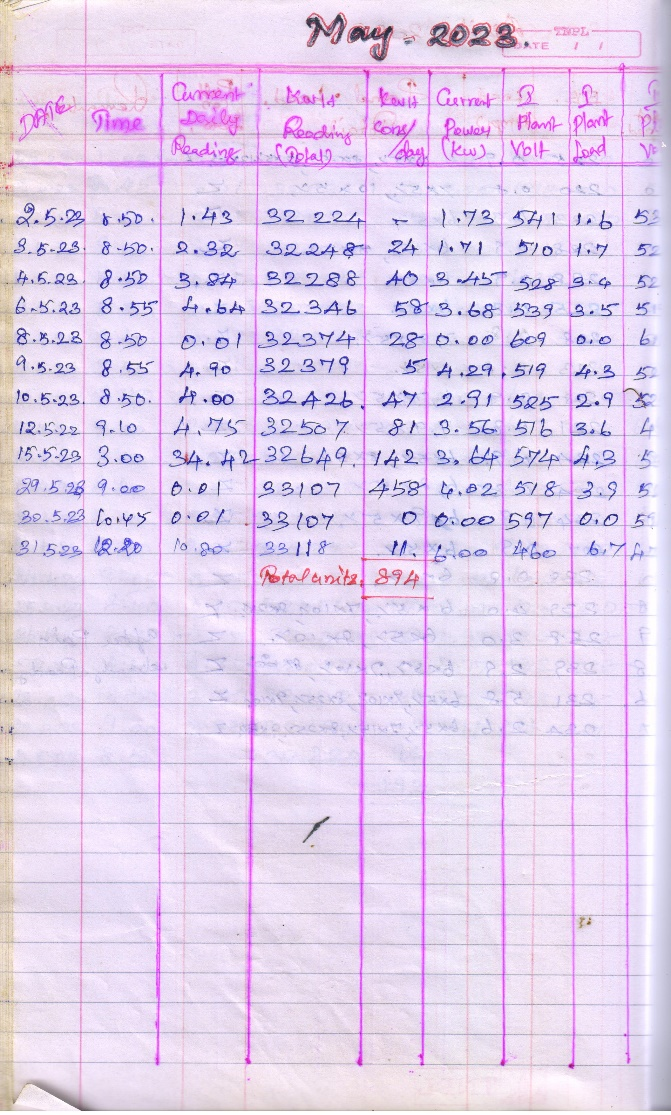 May - 2023.
TMPL
DATE / /
DATE Time Current Daily Reading Kwh Reading (Total) Kwh Cons/day Current Power (Kw) I Plant Volt I Plant Load
2.5.23 8.50. 1.43 32224 - 1.73 541 1.6
3.5.23. 8.50. 2.32 32248 24 1.71 510 1.7
4.5.23. 8.50 3.84 32288 40 3.45 528 3.4
6.5.23 8.55 4.64 32346 58 3.68 539 3.5
8.5.23 8.50 0.01 32374 28 0.00 609 0.0 6
9.5.23 8.55 4.90 32379 5 4.29. 519 4.3
10.5.23. 8.50. 4.00 32426. 47 2.91 525 2.9
12.5.22 9.10 4.75 32507 81 3.56 516 3.6 4
15.5.23 3.00 34.42 32649. 142 3.64 574 4.3 5
29.5.23 9.00 0.01 33107 458 4.02 518 3.9 5
30.5.23 10.45 0.01 33107 0 0.00 597 0.0 5
31.5.23 12.20 10.80 33118 11. 6.00 460 6.7 4
Total units. 894